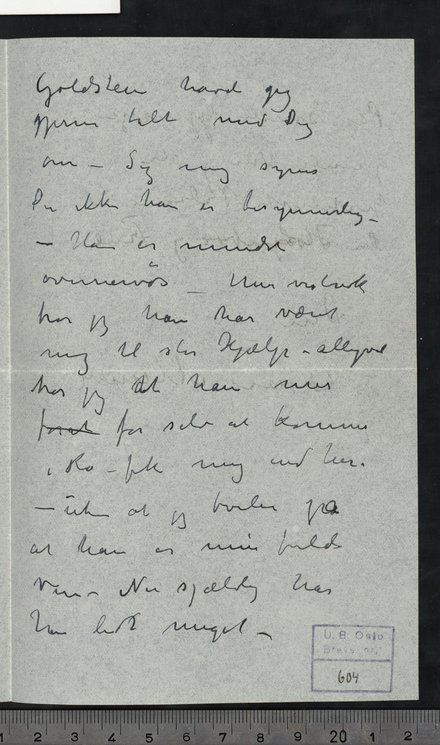 Goldstein havde jeg
gjerne talt med Dig
om – Sig mig synes
Du ikke han er besynnerlig –
– Han er mindst
overnervøs – Men vistnok
tror jeg han har været
mig til stor Hjælp – alligevel
tror jeg at han mer
for at for selv at komme
i Ro – fik mig ind her.
– uten at jeg tviler på
at han er min fulde
Ven – Men sjældig har
han lidt meget –
U. B. Oslo
Brevs. nr.
604
1 2 3 4 5 6 7 8 9 20 1 2